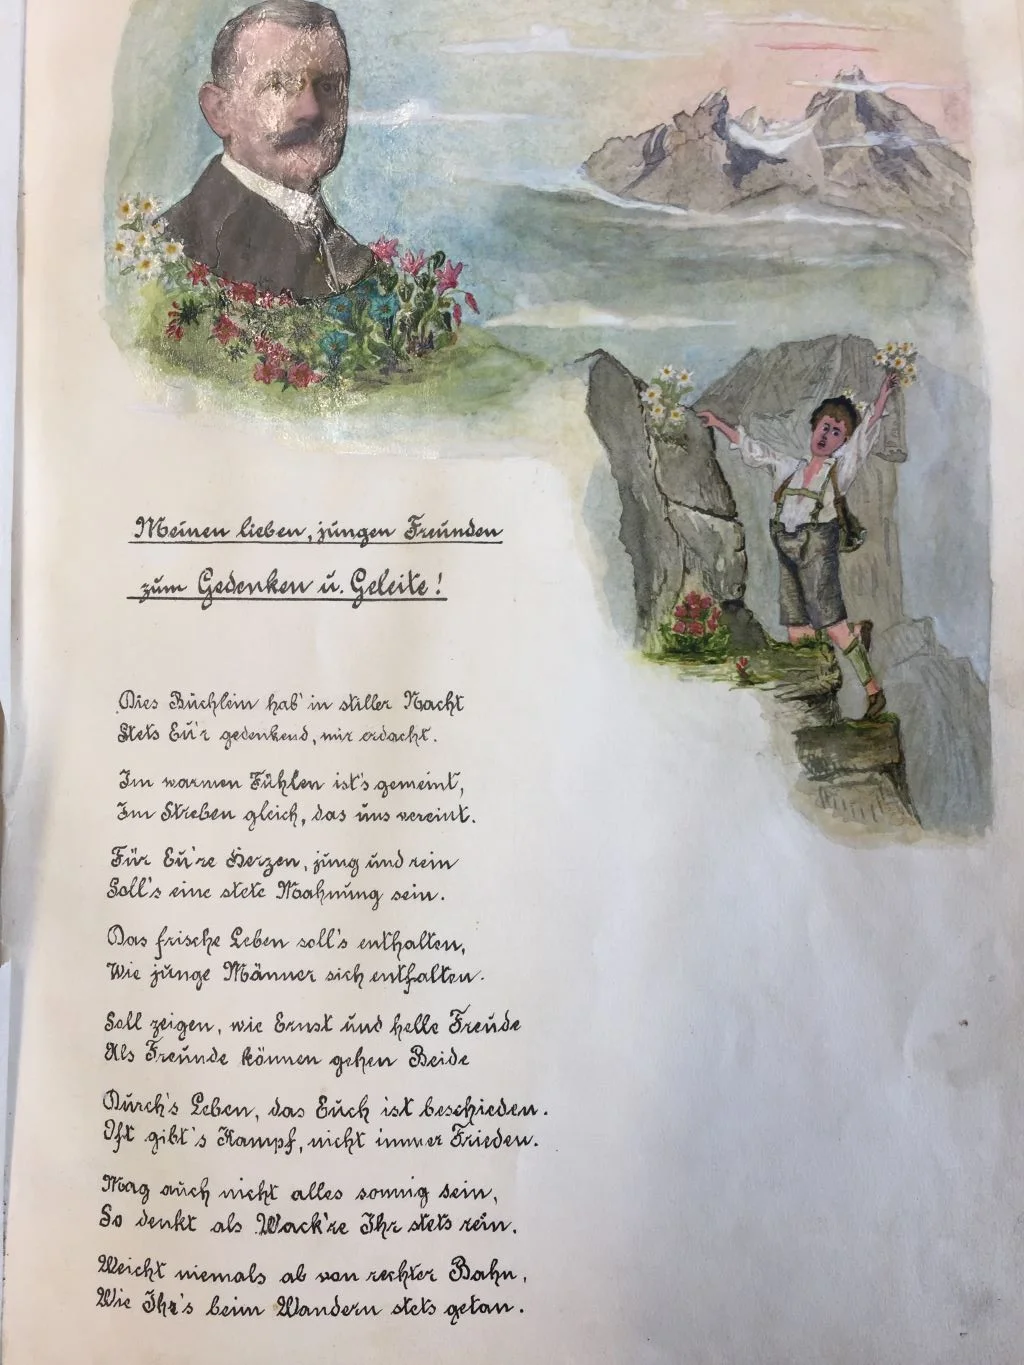 Meinen lieben, jungen Freunden
zum Gedenken u. Geleite!
Dies Büchlein hab' in stiller Nacht
Stets Eu'r gedenkend, mir erdacht.
Im warmen Fühlen ist's gemeint,
Im Streben gleich, das uns vereint.
Für Eu're Herzen, jung und rein
Soll's eine stete Mahnung sein.
Das frische Leben soll's enthalten,
Wie junge Männer sich entfalten.
Soll zeigen, wie Ernst und helle Freude
Als Freunde können gehen Beide
Durch's Leben, das Euch ist beschieden.
Oft gibt's Kampf, nicht immer Frieden.
Mag auch nicht alles sonnig sein,
So denkt als Wack're Ihr stets rein.
Weicht niemals ab von rechter Bahn,
Wie Ihr's beim Wandern stets getan.